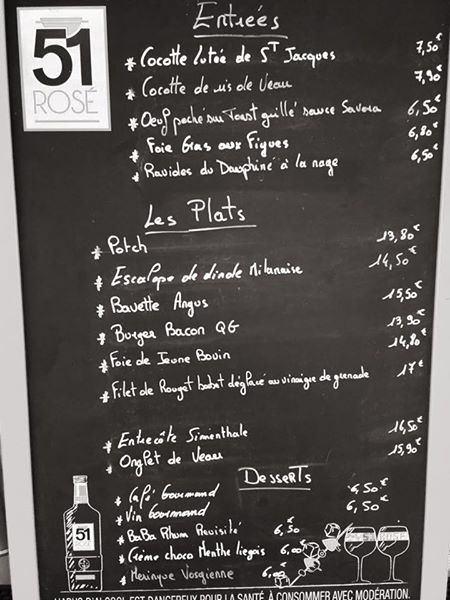 51
ROSÉ
Entrées
* Cocotte lutée de S^T Jacques 7,50€
* Cocotte de ris de Veau 7,90€
* Oeuf poché sur Toast grillé sauce Savora 6,50€
* Foie Gras aux Figues 6,80€
* Ravioles du Dauphiné à la nage 6,50€
Les Plats
* Potch 13,80€
* Escalope de dinde Milanaise 14,50€
* Bavette Angus 15,50€
* Burger Bacon QG 13,90€
* Foie de Jeune Bovin 14,80€
* Filet de Rouget déglacé au vinaigre de grenade 17€
* Entrecôte Simmenthale 16,50€
* Onglet de Veau 15,90€
Desserts
* Café Gourmand 6,50€
* Vin Gourmand 6,50€
* BaBa Rhum Revisité 6,50
* Crème choco Menthe liegois 6,00€
* Meringue Vosgienne 6,00€
51
L'ABUS D'ALCOOL EST DANGEREUX POUR LA SANTÉ, À CONSOMMER AVEC MODÉRATION.